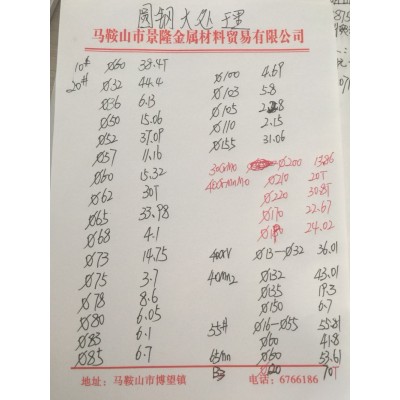 圆钢大处理
马鞍山市景隆金属材料贸易有限公司
10# Ø60 38.4T
20# Ø32 44.4
Ø36 6.13
Ø50 15.06
Ø52 37.09
Ø57 11.16
Ø60 15.32
Ø62 30T
Ø65 33.98
Ø68 4.1
Ø73 14.75
Ø75 3.7
Ø78 8.6
Ø80 6.05
Ø83 6.1
Ø85 6.7
Ø100 4.69
Ø103 5.8
Ø105
Ø110 2.15
Ø155 31.06
Ø200 13.86
Ø210 20T
Ø220 30.8T
Ø170 22.67
24.02
Ø13—Ø32 36.01
40Mn2 Ø132 43.01
Ø135 19.3
Ø150 6.7
35# Ø16—Ø55
Ø60 41.8
65Mn Ø60 53.61
70T
地址：马鞍山市博望镇 电话：6766186